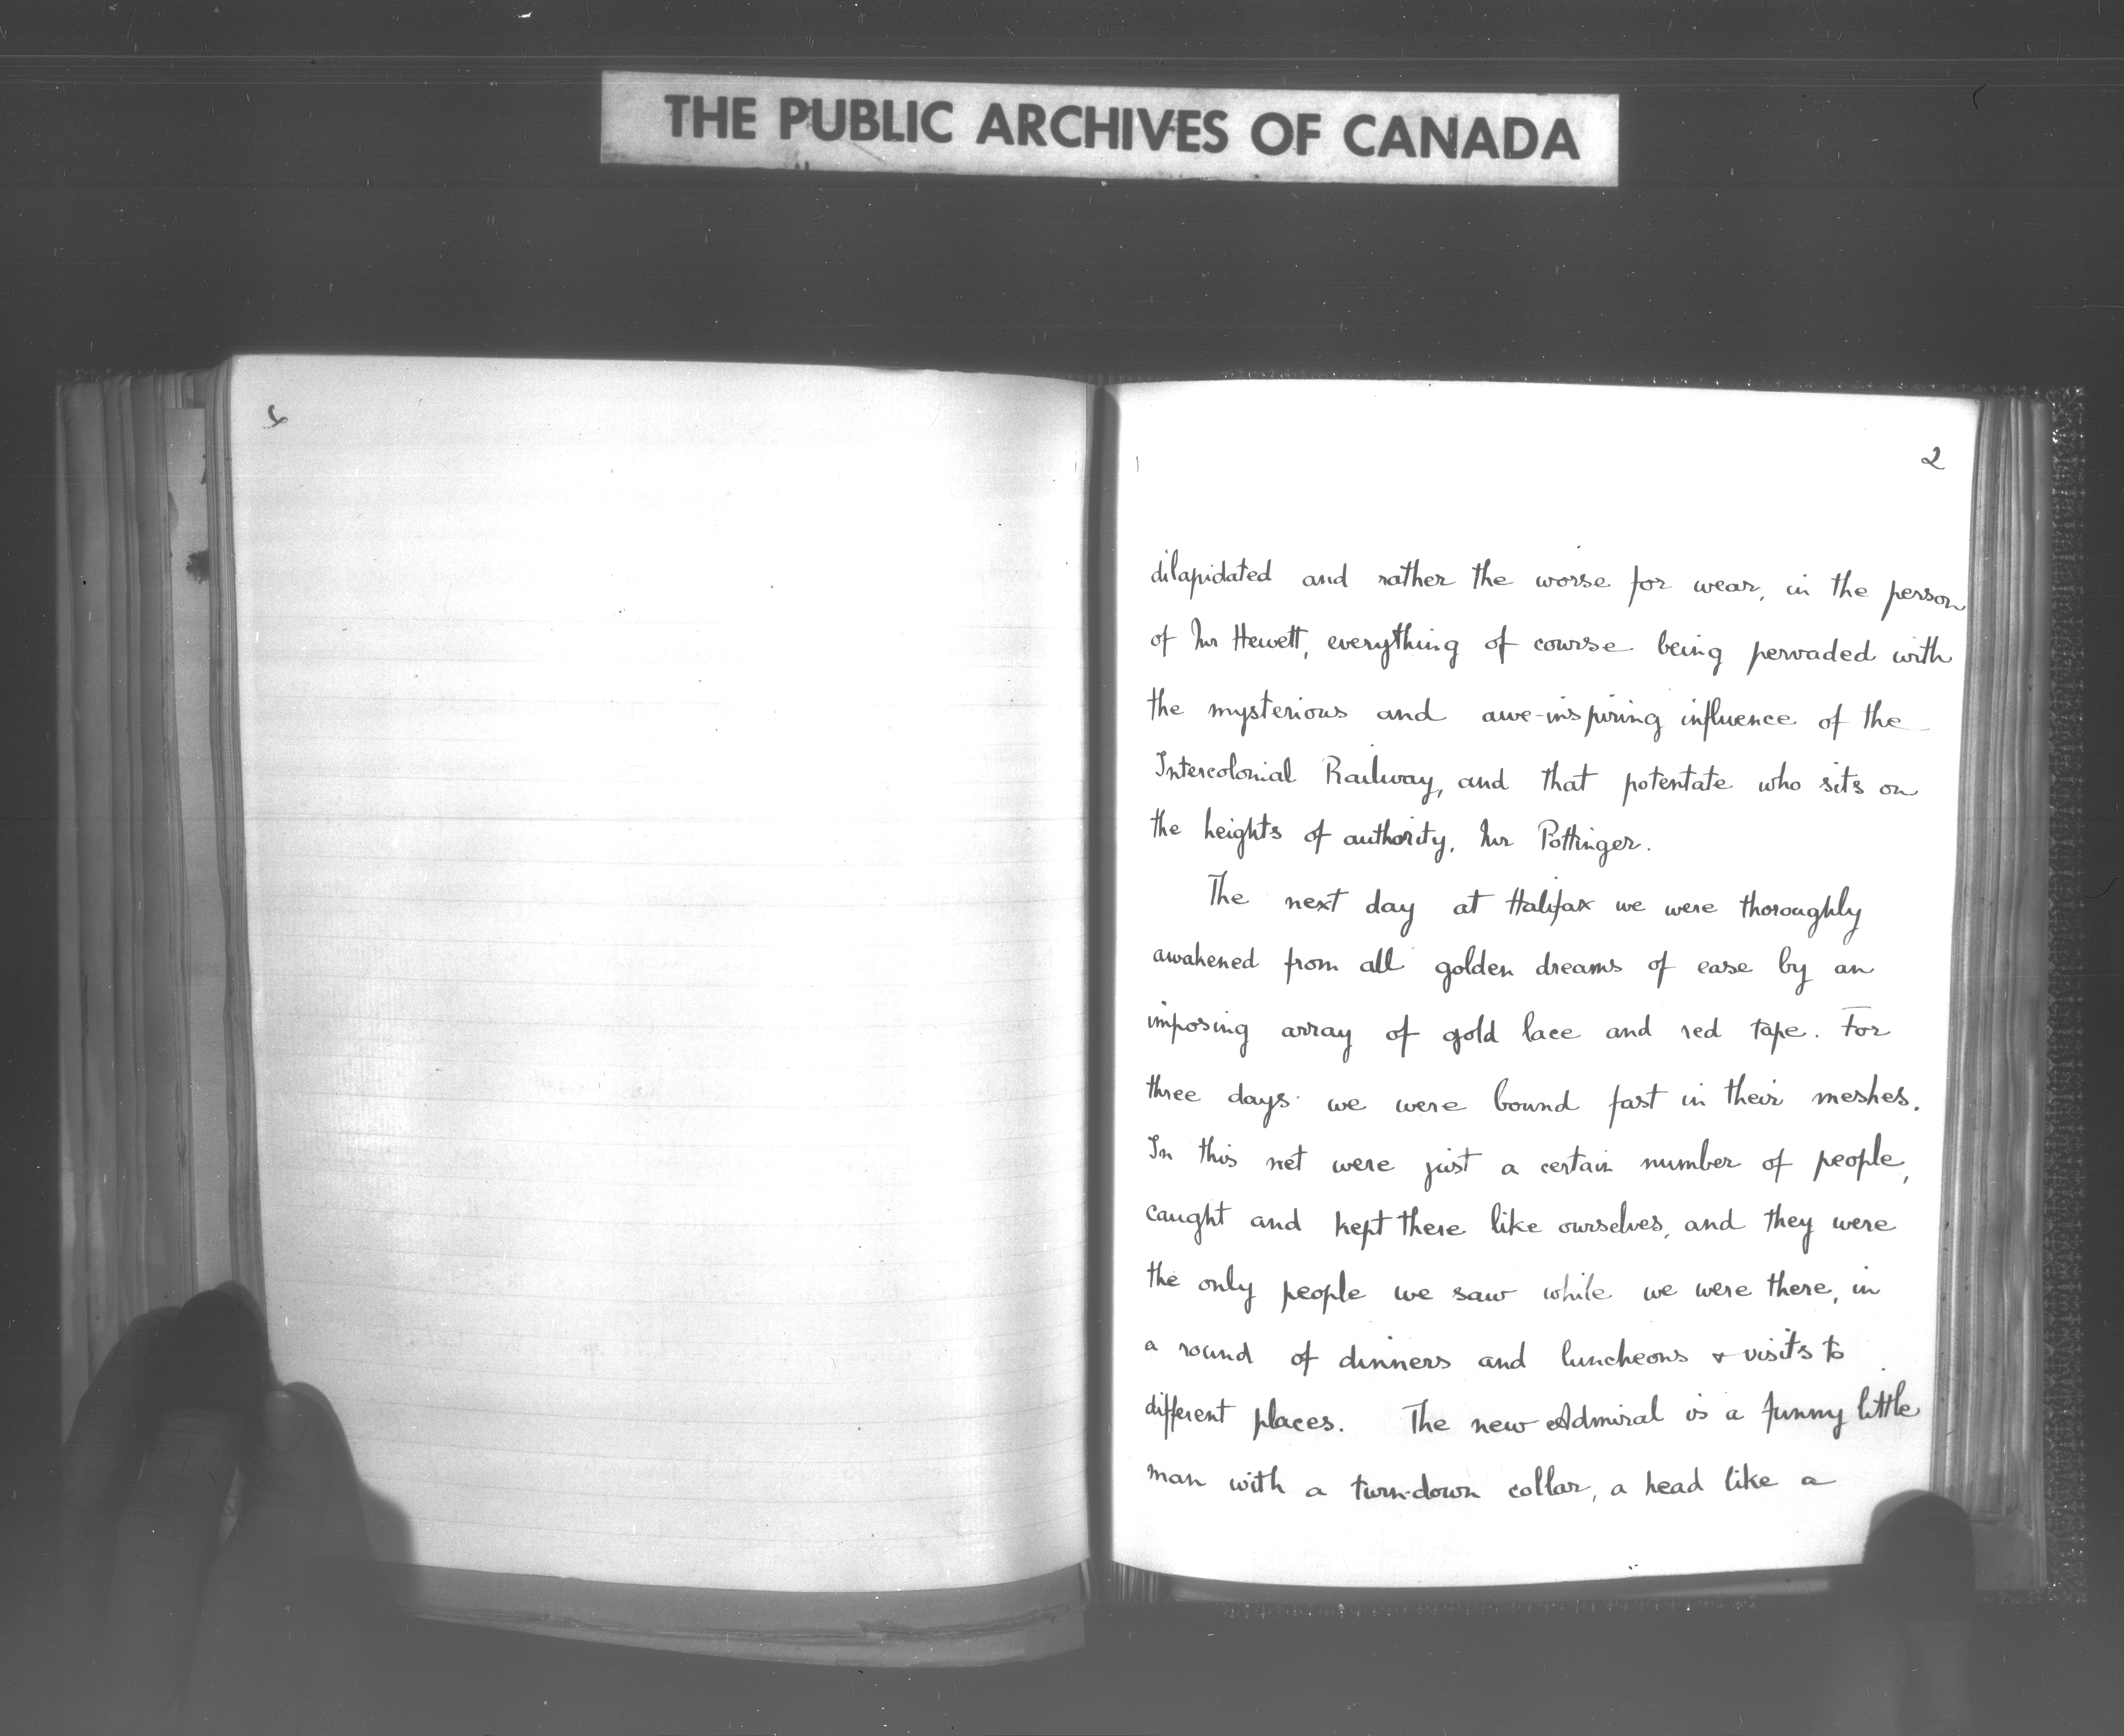 THE PUBLIC ARCHIVES OF CANADA
2
dilapidated and rather the worse for wear, in the person
of Mr Hewett, everything of course being pervaded with
the mysterious and awe-inspiring influence of the
Intercolonial Railway, and that potentate who sits on
the heights of authority, Mr Pottinger.
The next day at Halifax we were thoroughly
awakened from all golden dreams of ease by an
imposing array of gold lace and red tape. For
three days we were bound fast in their meshes.
In this net were just a certain number of people,
caught and kept there like ourselves, and they were
the only people we saw while we were there, in
a round of dinners and luncheons & visits to
different places. The new Admiral is a funny little
man with a turn-down collar, a head like a